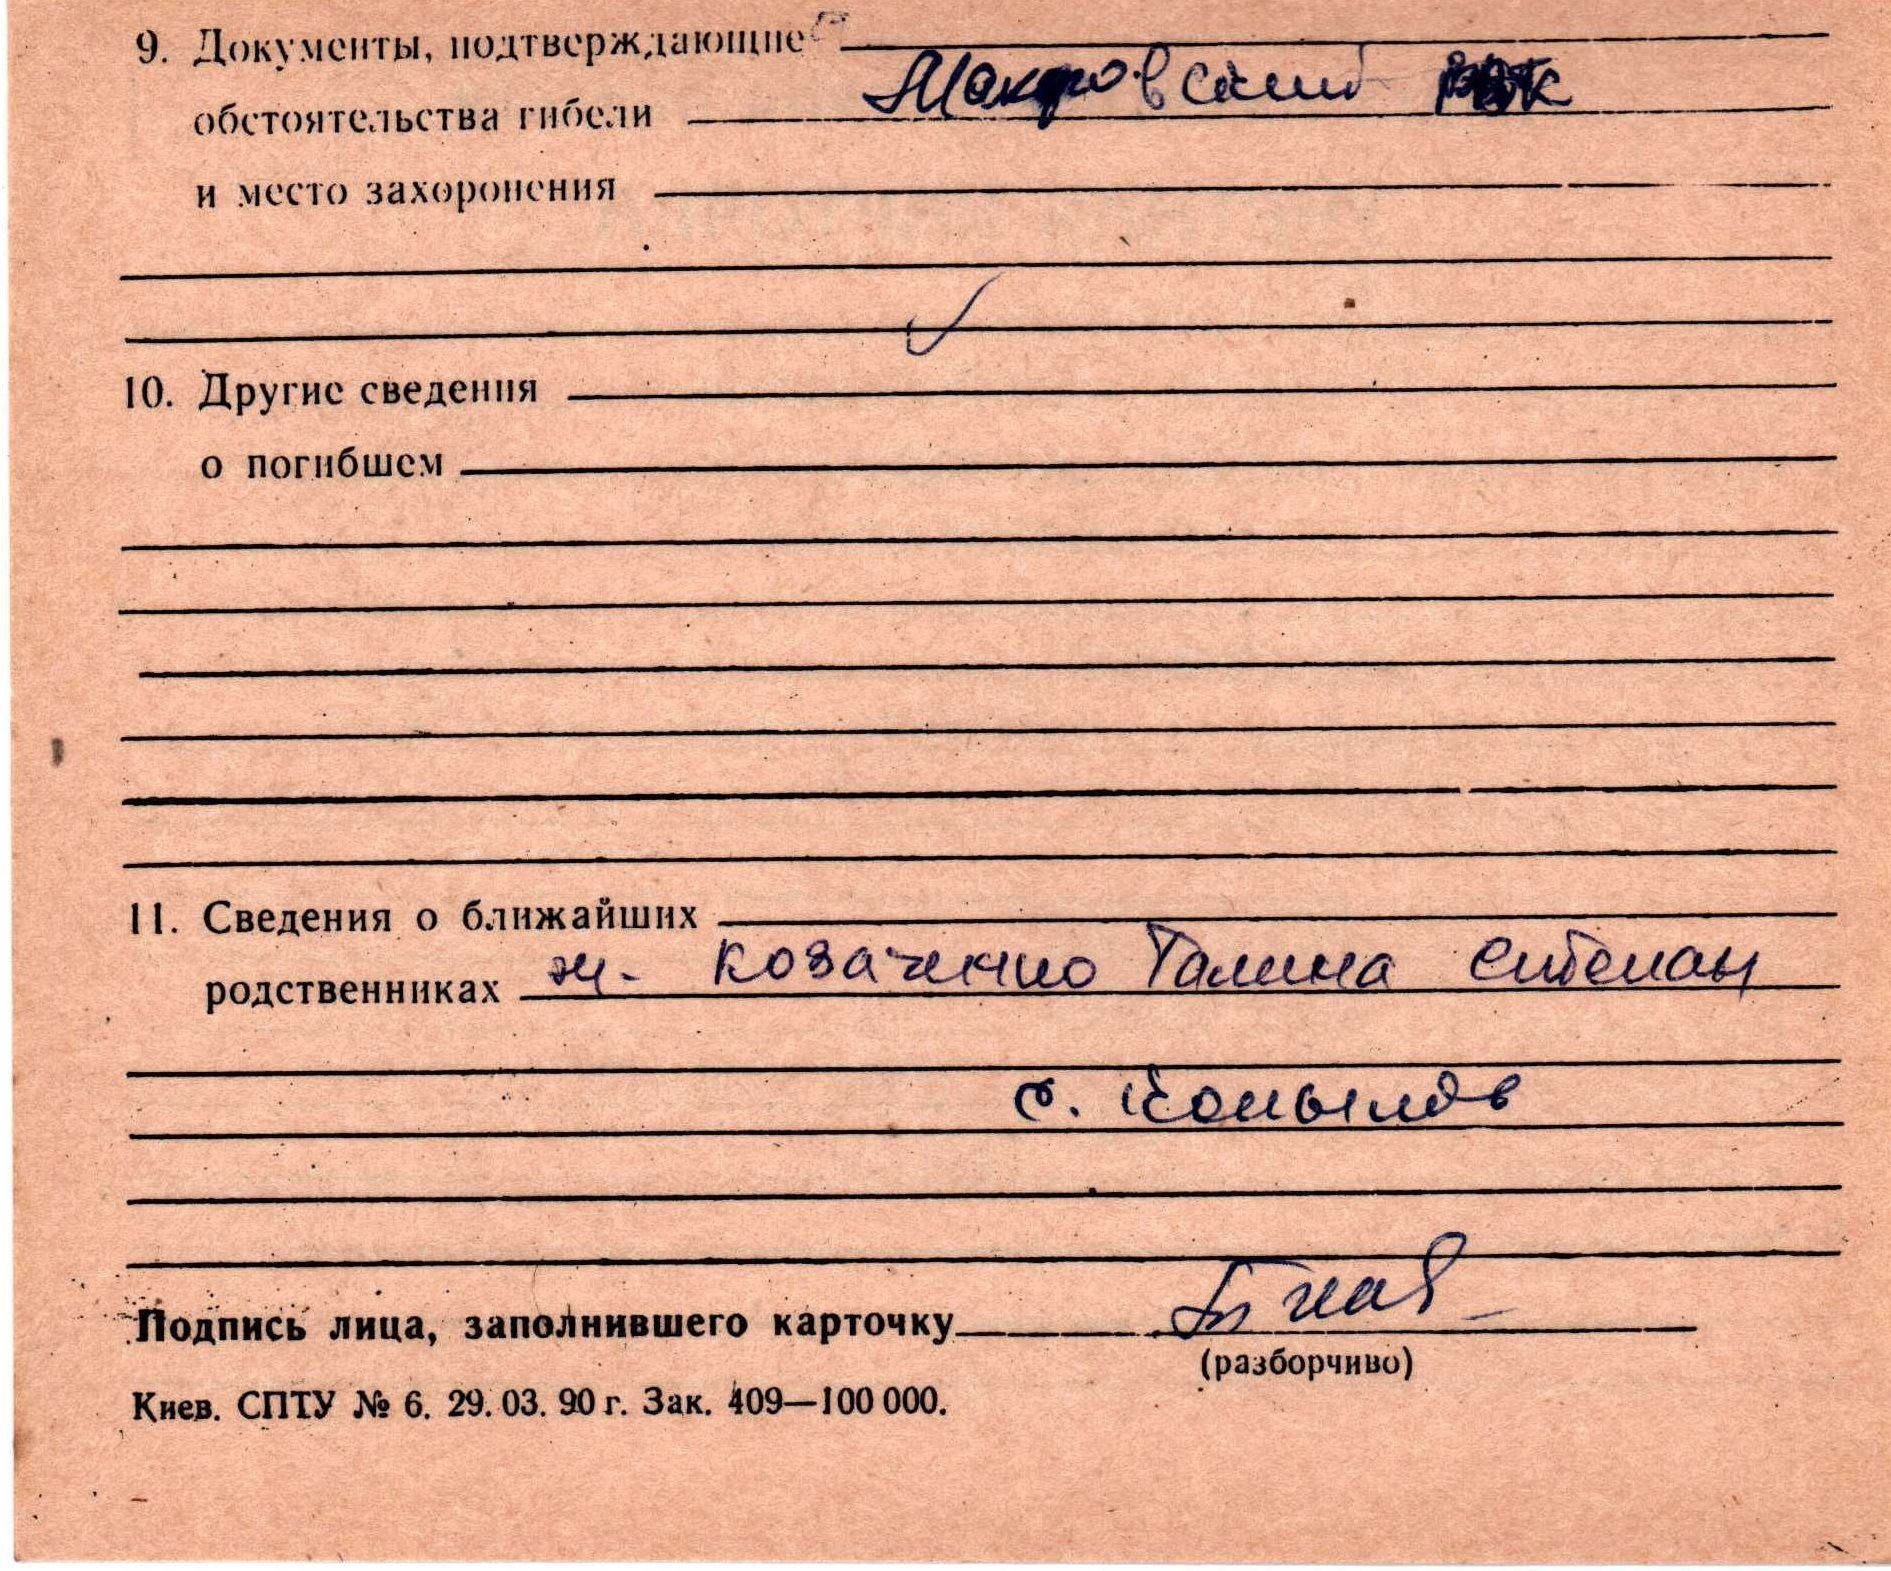 9. Документы, подтверждающие
Макаровский РВК
обстоятельства гибели
и место захоронения
10. Другие сведения
о погибшем
11. Сведения о ближайших
родственниках ж. Козаченко Галина Степан
с. Копылов
Подпись лица, заполнившего карточку
(разборчиво)
Киев. СПТУ № 6. 29.03.90 г. Зак. 409—100 000.